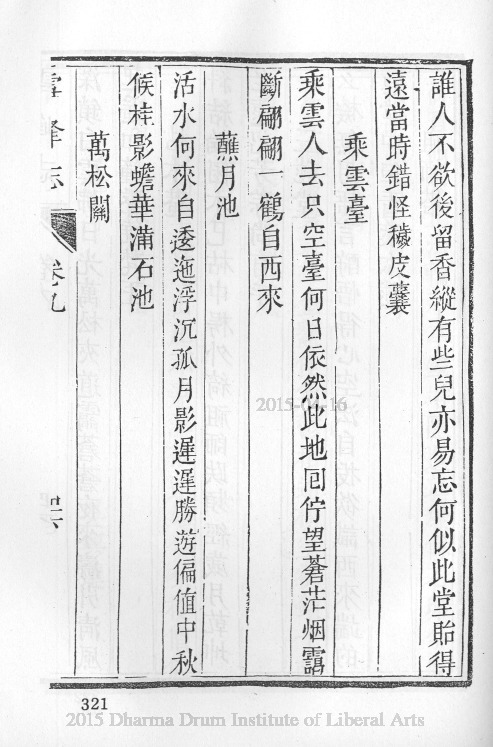 誰人不欲後留香縱有些兒亦易忘何似此堂貽得
遠當時錯怪穢皮囊
乘雲臺
乘雲人去只空臺何日依然此地回佇望蒼茫烟靄
斷翩翩一鶴自西來
蘸月池
活水何來自逶迤浮沉孤月影遲遲勝遊偏值中秋
候桂影蟾華滿石池
萬松關
雪峰志
卷九
321
2015-04-16
2015 Dharma Drum Institute of Liberal Arts